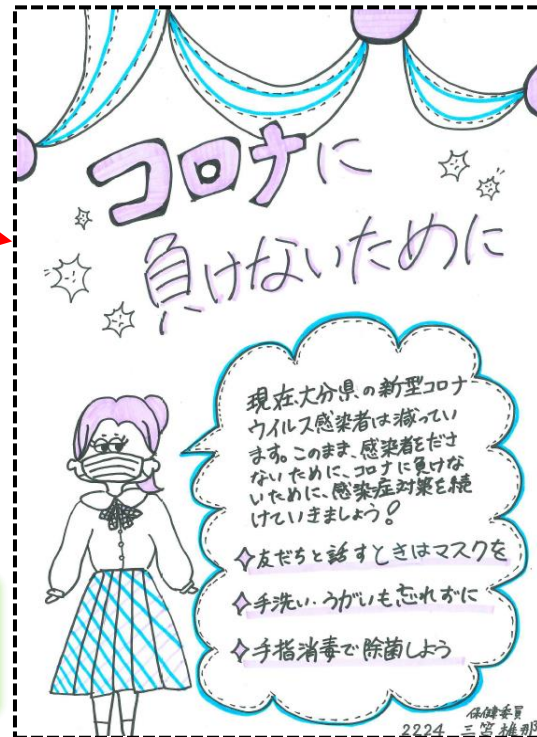 コロナに
負けないために
現在、大分県の新型コロナ
ウイルス感染者は減ってい
ます。このまま、感染者をださ
ないために、コロナに負けな
いために、感染症対策を続
けていきましょう!
✧友だちと話すときはマスクを
✧手洗い・うがいも忘れずに
✧手指消毒で除菌しよう
保健委員
2224 三宮雅那